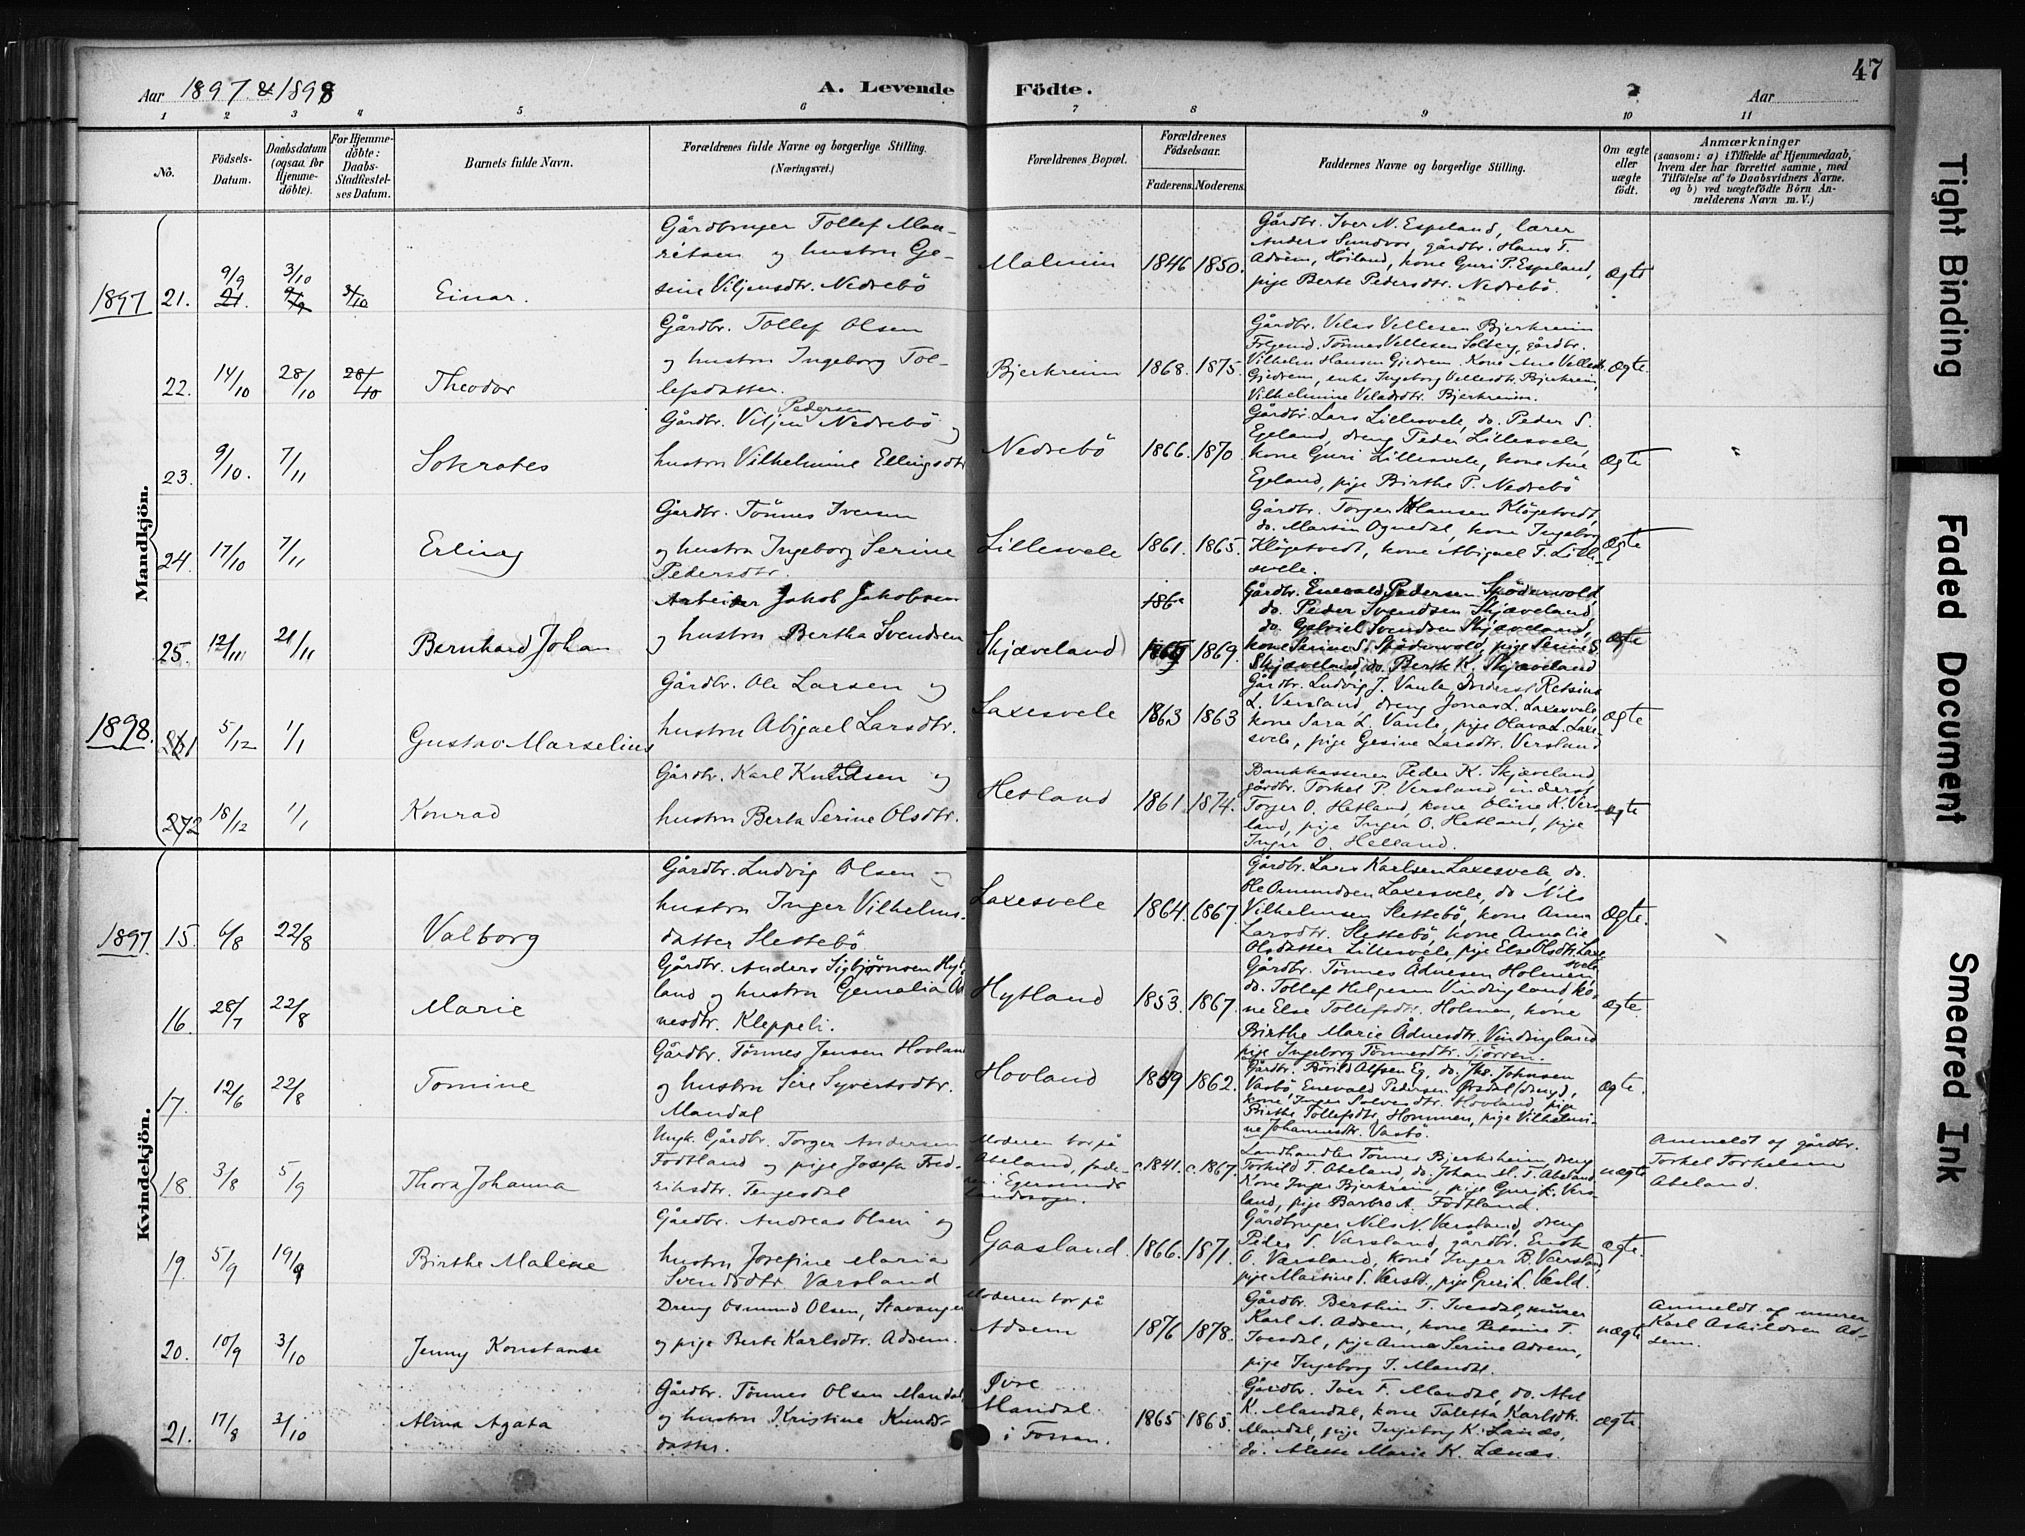 Aar 1897 & 1898
A. Levende Födte.
Aar
47
1 2 3 4 5 6 7 8 9 10 11
No.
Födsels-Datum.
Daabsdatum (ogsaa for Hjemme-döbte).
For Hjemme-döbte: Daabs-Stadfæstel-ses Datum.
Barnets fulde Navn.
Forældrenes fulde Navne og borgerlige Stilling.
(Næringsvei.)
Forældrenes Bopæl.
Forældrenes Födselsaar.
Faderens. Moderens.
Faddernes Navne og borgerlige Stilling.
Om ægte eller uægte födt.
Anmærkninger
(saasom: a) i Tilfælde af Hjemmedaab, hvem der har forrettet samme, med Tilföielse af to Daabsvidners Navne, og b) ved uægtefödte Börn An-melderens Navn m. V.)
Mandkjön.
1897 21. 9/9 3/10 Einar.
Gårdbruger Tollef Mau-
ritsen og hustru Ge-
sine Viljensdtr. Nedrebö
Malmin 1846 1850.
Gårdbr. Iver N. Espeland, lærer
Anders Sundvor, gårdbr. Hans T.
Adsem, Höiland, kone Guri P. Espeland,
pige Berte Pedersdtr. Nedrebö.
Ægte
22. 14/10 28/10 28/10 Theodor
Gårdbr. Tollef Olsen
og hustru Ingeborg Tol-
lefsdatter.
Bjerkreim 1868. 1875.
Gårdbr. Velas Vellesen Bjerkreim
Tönnes Vellesen Solberg, gårdbr.
Vilhelm Hansen Gjedrem, Kone Ane Vellesdt.
Gjedrem, enke Ingeborg Vellesdt. Bjerkreim,
Vilhelmine Veladsdtr. Bjerkreim.
Ægte.
23. 9/10. 7/11 Sokrates
Gårdbr. Viljen Pedersen Nedrebö og
hustru Vilhelmine Ellingsdtr
Nedrebö 1866. 1870
Gårdbr. Lars Lillesvele, do. Peder S.
Egeland, dreng Peder Lillesvele,
kone Guri Lillesvele, kone Ane
Egeland, pige Birthe P. Nedrebö
Ægte
24. 17/10 7/11 Erling
Gårdbr. Tönnes Iversen
og hustru Ingeborg Serine
Pedersdtr.
Lillesvele 1861. 1865.
Gårdbr. Torger Hansen Klögetvedt,
do. Martin Ognedal, kone Ingeborg
Klögetvedt, kone Abigael T. Lille-
svele.
Ægte
25. 12/11 21/11 Bernhard Johan
Arbeider Jakob Jakobsen
og hustru Bertha Svendsen
Skjæveland 1869.
Gårdbr. Enevald Pedersen
do. Peder Svendsen Skjæveland,
do. Gabriel Svendsen Skjæveland,
kone Serine S. pige Serine S.
Skjæveland, do. Berte K. Skjæveland
Ægte
1898. 1 5/12 1/1 Gustav Marselius
Gårdbr. Ole Larsen og
hustru Abigael Larsdtr.
Laxesvele 1863 1863
Gårdbr. Ludvig J. Vanle, Inderst Retsius
L. Versland, dreng Jonas L. Laxesvele,
kone Sara L. Vanle, pige Olava L. Laxe-
svele, pige Gesine Larsdtr. Versland
Ægte
2 18/12 1/1 Konrad
Gårdbr. Karl Knudsen og
hustru Berta Serine Olsdtr.
Hetland 1861 1874.
Bankkasserer Peder K. Skjæveland,
gårdbr. Torkel P. Versland, inderst
Torger O. Hetland, kone Oline K. Vers-
land, pige Inger O. Hetland, pige
Inger O. Helland.
Ægte
Kvindekjön.
1897. 15. 6/8 22/8 Valborg
Gårdbr. Ludvig Olsen og
hustru Inger Vilhelms-
datter Slettebö
Laxesvele 1864. 1867.
Gårdbr. Lars Karlsen Laxesvele, do.
Ole Omundsen Laxesvele, do. Nils
Vilhelmsen Slettebö, kone Anna
Larsdtr. Slettebö, kone Amalie
Olsdatter Lillesvele, pige Else Olsdtr. Laxe-
svele
Ægte.
16. 28/7 22/8 Marie
Gårdbr. Anders Sigbjørnsen Hyt-
land og hustru Gemalia Ad-
nesdtr. Kleppeli.
Hytland 1853. 1867.
Gårdbr. Tönnes Ådnesen Holmen,
do. Tollef Helgesen Vindingland, ko-
ne Else Tollefsdtr. Holmen, kone
Birthe Marie Ådnesdtr. Vindingland
pige Ingeborg Tönnesdtr. Tjörren.
Ægte.
17. 12/6 22/8 Tomine
Gårdbr. Tönnes Jensen Hovland
og hustru Sire Syvertsdtr.
Mandal
Hovland 1859 1862.
Gårdbr. Börild Alfsen Eg, do. Jhs. Johnsen
Vasbö, Enevald Pedersen Ørsdal (dreng),
kone Inger Salvesdtr. Hovland, pige
Birthe Tollefsdtr. Hommen, pige Vilhelmi-
ne Johannesdtr. Vasbö.
Ægte.
18 3/8 5/9 Thora Johanna
Ungk. Gårdbr. Torger Andersen
Fodtland og pige Josefa Fred-
riksdtr. Tengesdal
Moderen bor på
Abeland, fade-
ren: Egersunds
Landsogn.
c. 1841. c. 1867.
Landhandler Tönnes Bjerkreim, dreng
Torkild T. Abeland, do. Johan M. T. Abeland
kone Inger Bjerkreim, pige Guri L. Vers-
land, pige Barbro A. Fodtland.
uægte
Anmeldt af gårdbr.
Torkel Torkelsen
Abeland.
19. 5/9 19/9 Birthe Maline
Gårdbr. Andreas Olsen og
hustru Josefine Maria
Svendsdtr. Versland
Gaasland. 1866. 1871.
Gårdbruger Nils N. Versland, dreng
Peder S. Versland, gårdbr. Enok
O. Versland, kone Inger B. Versland,
pige Martine S. Versld., pige Guri L. Versld.
ægte.
20. 10/9 3/10 Jenny Konstanse
Dreng Osmund Olsen, Stavanger
og pige Berte Karlsdtr. Adsem.
Moderen bor på
Adsem
1876 1878.
Gårdbr. Berthin T. Ivesdal, murer
Karl A. Adsem, kone Retsine T.
Ivesdal, pige Anne Serine Adsem,
pige Ingeborg T. Mandal.
uægte
Anmeldt af murer
Karl Askildsen Ad-
sem.
21. 17/8 3/10 Alina Agata
Gårdbr. Tönnes Olsen Mandal,
og hustru Kristine Knuds-
datter.
Øvre
Mandal
i Fossan.
1865 1865.
Gårdbr. Iver F. Mandal, do. Abel
K. Mandal, kone Taletta Karlsdtr.
Mandal, pige Ingeborg K. Lanæs,
do. Alette Marie K. Lanæs.
ægte
Tight Binding
Faded Document
Smeared Ink